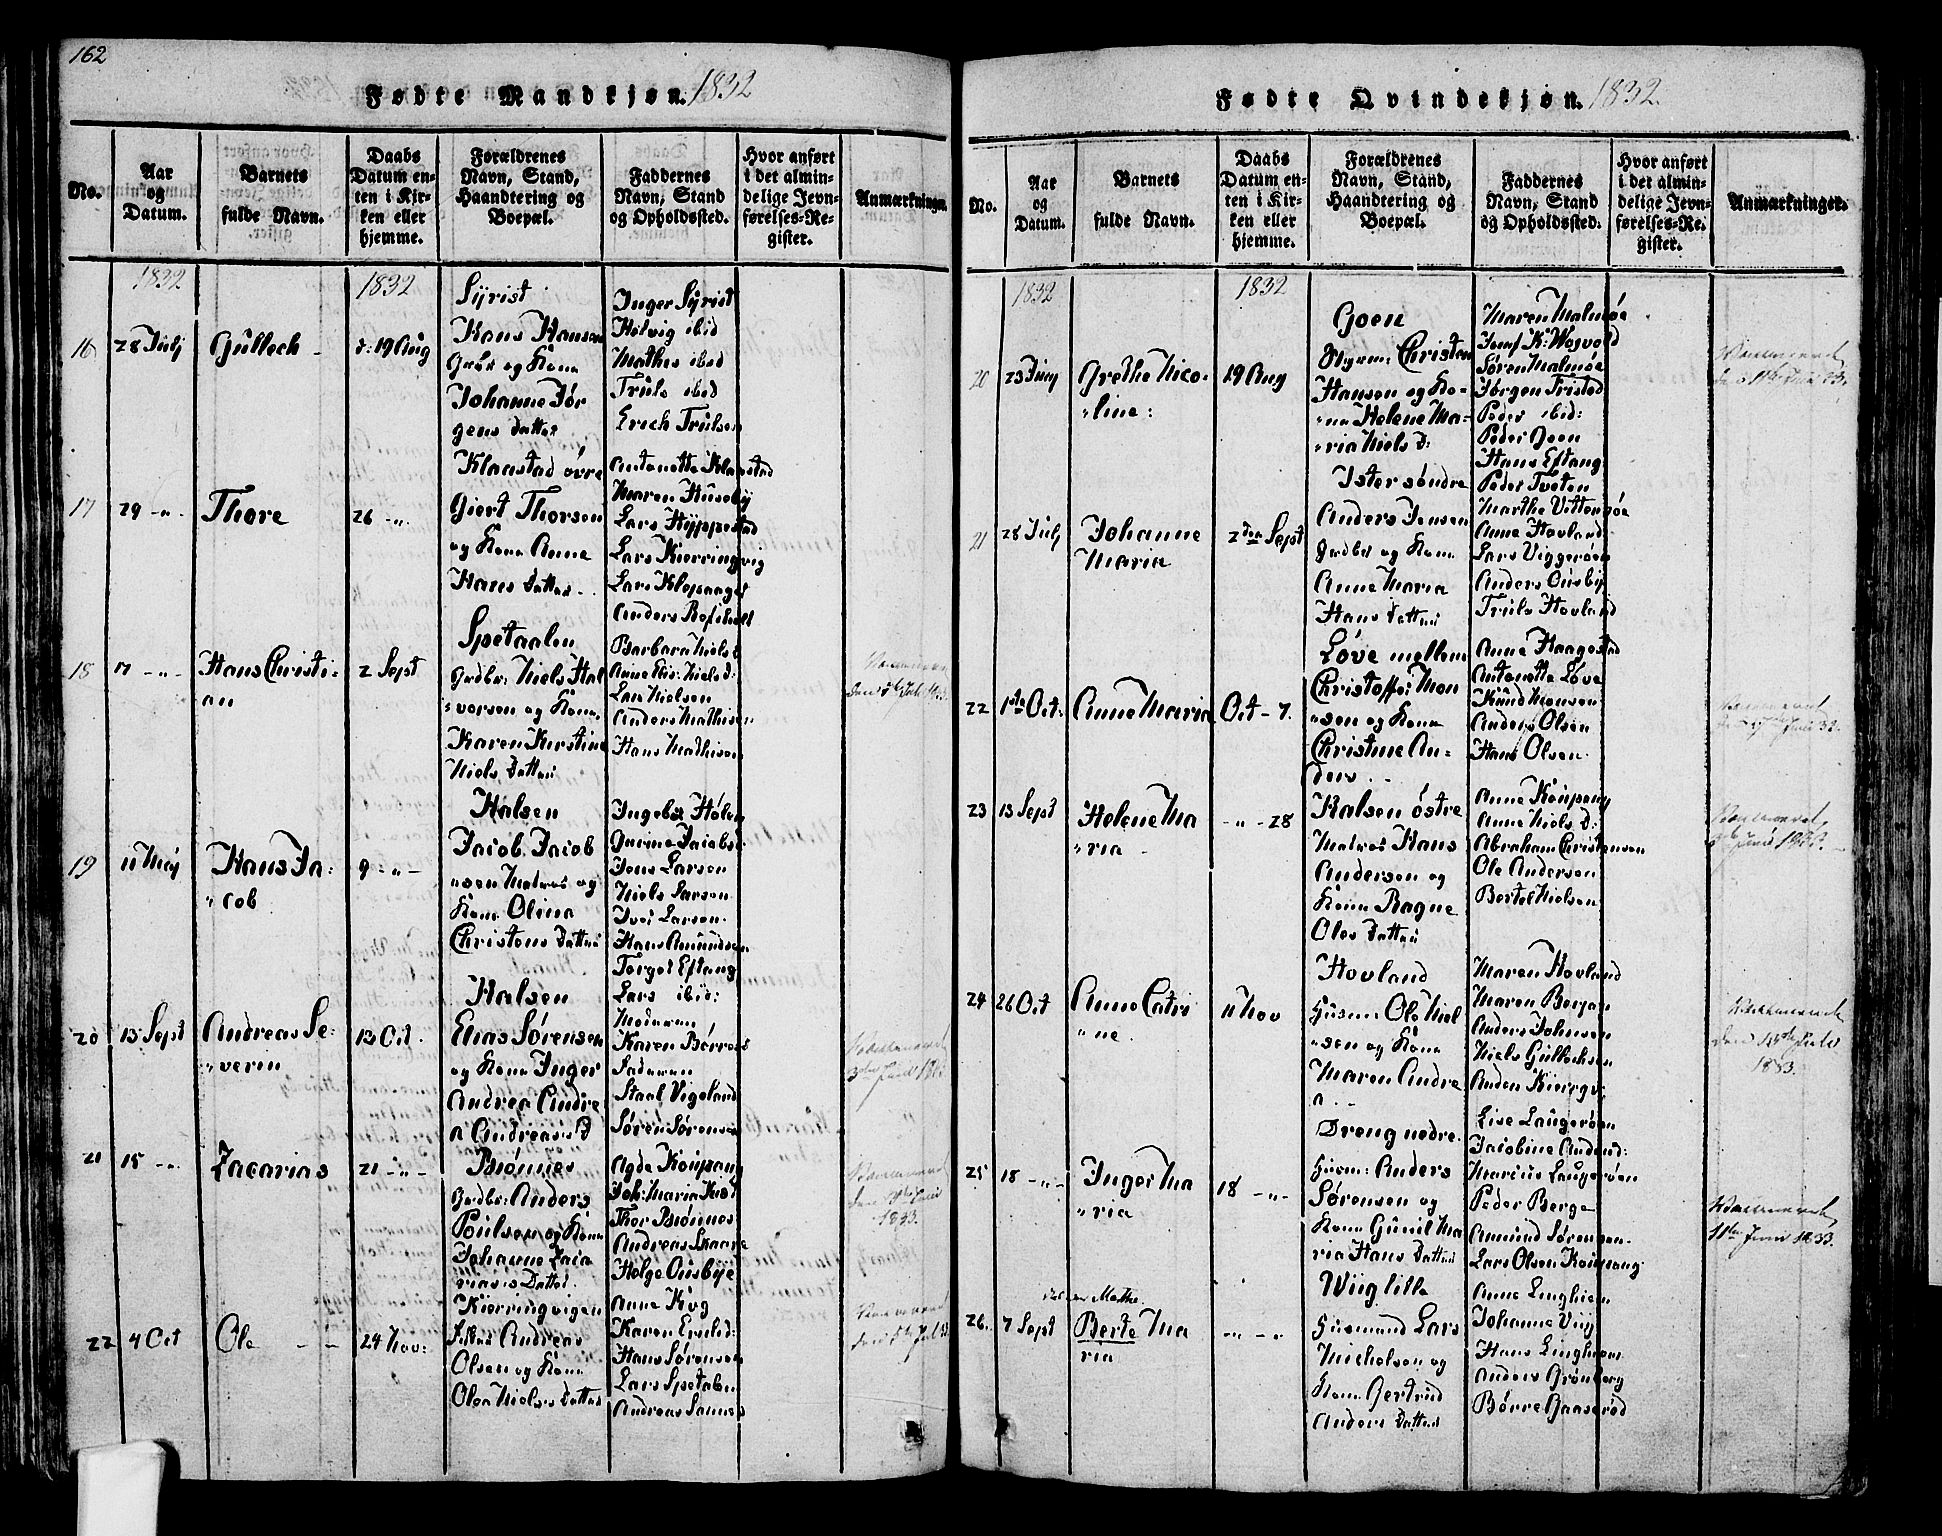 162
Fødte Mandkjøn. 1832
No.
Aar
og
Datum.
Barnets
fulde Navn.
Daabs
Datum en-
ten i Kir-
ken eller
hjemme.
Forældrenes
Navn, Stand,
Haandtering og
Boepæl.
Faddernes
Navn, Stand
og Opholdssted.
Hvor anført
i det almin-
delige Jevn-
førelses-Re-
gister.
Anmærkninger.
1832
1832
16
28 July
Gullech
d: 19 Aug
Syrist
Hans Hansen
og Kona
Johanne Jør
gens Datter
Inger Syrist
Helvig ibid
Mathis ibid
Truls ibid
Erich Trulsen
17
29 -"-
Thore
26 -"-
Klaastad øvre
Giert Thorsen
og Kona Anne
Hans Datter
Antonette Klaastad
Maren Huseby
Lars Hyppestad
Lars Kierringvig
Lars Klopaager
Anders
18
17 -"-
Hans Christi-
an
2 Sept
Spetaalen
Grdbr: Niels Hal
vorsen og Kona
Karen Kirstine
Niels Datter
Barbara Nielsd
Anne Elis: Nielsd:
Lars Nielsen
Anders Mathisen
Hans Mathisen
19
11 May
Hans Ja:
"cob
9 -"-
Halsen
Jacob Jacob
"sen Matros og
Kona Olina
Christens Datter
Ingebor Holen
Gurine Jacobsd
Jens Larsen
Niels Larsen
Iver Larsen
Hans Amundsen
20
13 Sept
Andreas Se-
"verin
13 Oct.
Halsen
Elias Sørensen
og Kona Inger
Andrea Andre
a Andreas D
Torger Eftang
Lars ibid:
Modeman
Karen Børres
Staal Vigeland
Søren Sørensen
21
15 -"-
Zacarias
21 -"-
Brønnes
Grdbr: Anders
Poulsen og Kona
Johanne Zaca
riases Datter
Agde Koupang
Joh: Maria Kist
Thor Brønnes
Andreas Skaare
Helge Ousbye
1833.
22
4 Oct
Ole
24 Nov:
Kierringvigen
Andreas
Olsen og Kona
Olea Niels Datter
Anne Kog
Karen Ersdd:
Hans Sørensen
Lars Spetalen
Andreas Sannes
Fødte Qvindekjøn. 1832.
No.
Aar
og
Datum.
Barnets
fulde Navn.
Daabs
Datum en-
ten i Kir-
ken eller
hjemme.
Forældrenes
Navn, Stand,
Haandtering og
Boepæl.
Faddernes
Navn, Stand
og Opholdssted.
Hvor anført
i det almin-
delige Jevn-
førelses-Re-
gister.
Anmærkninger.
1832
1832
20
23 July
Grethe Nico-
"line:
19 Aug
Goen
Styrm: Christen
Hansen og Ko-
na Helene Ma-
ria Niels D:
Maren Malmøe
Søren Malmøe
Jørgen Tristed
Peder ibid:
Peder Goen
Hans Eftang
21
28 July
Johanne
Maria
2den Sept
Ister søndre
Anders Jensen
Grdbr og Kona
Anne Maria
Hans Datter
Peder Tveten
Marthe Vittersøe
Anne Hovland
Lars Viggerøen
Anders Ousby
Truls Hovland
22
1ste Oct.
Anne Maria
Oct - 7.
Løve mellem
Christoffer Mon
"sen og Kona
Christine An-
ders
Anne Haagestad
Antonette Løve
Knud Monsen
Anders Olsen
Hans Olsen
23
13 Sept
Helene Ma
"ria
-"- 28
Halsen østre
Matros Hans
Andersen og
Kona Ragne
Oles Datter
Anne Koupang
Anne Niels D:
Abraham Christensen
Ole Andersen
Bertel Nielsen
24
26 Oct
Anne Catri
"ne.
11 Nov
Hovland
Husm: Ole Niel
"sen og Kona
Maren Andre
a
Maren Hovland
Maren Bergan
Anders Johnsen
Niels Gullachsen
1833.
25
18 -"-
Inger Ma
"ria
18 -"-
Dreng nedre
Husm: Anders
Sørensen og
Kona Gunil Ma
ria Hans Datter
Lise Laugerøen
Jacobine Andersd:
Marcus Laugerøen
Peder Berge
Amund Sørensen
Lars Olsen Koupang
11te Juni 1833.
26.
7 Sept
Berte Ma
ria
-"-
Wiig lille
Husmand Lars
Nicholsen og
Kona Gertrud
Anders Datter
Anne Linghiem
Johanne Viig
Hans Linghiem
Anders Grønberg
Børre Gaaserød